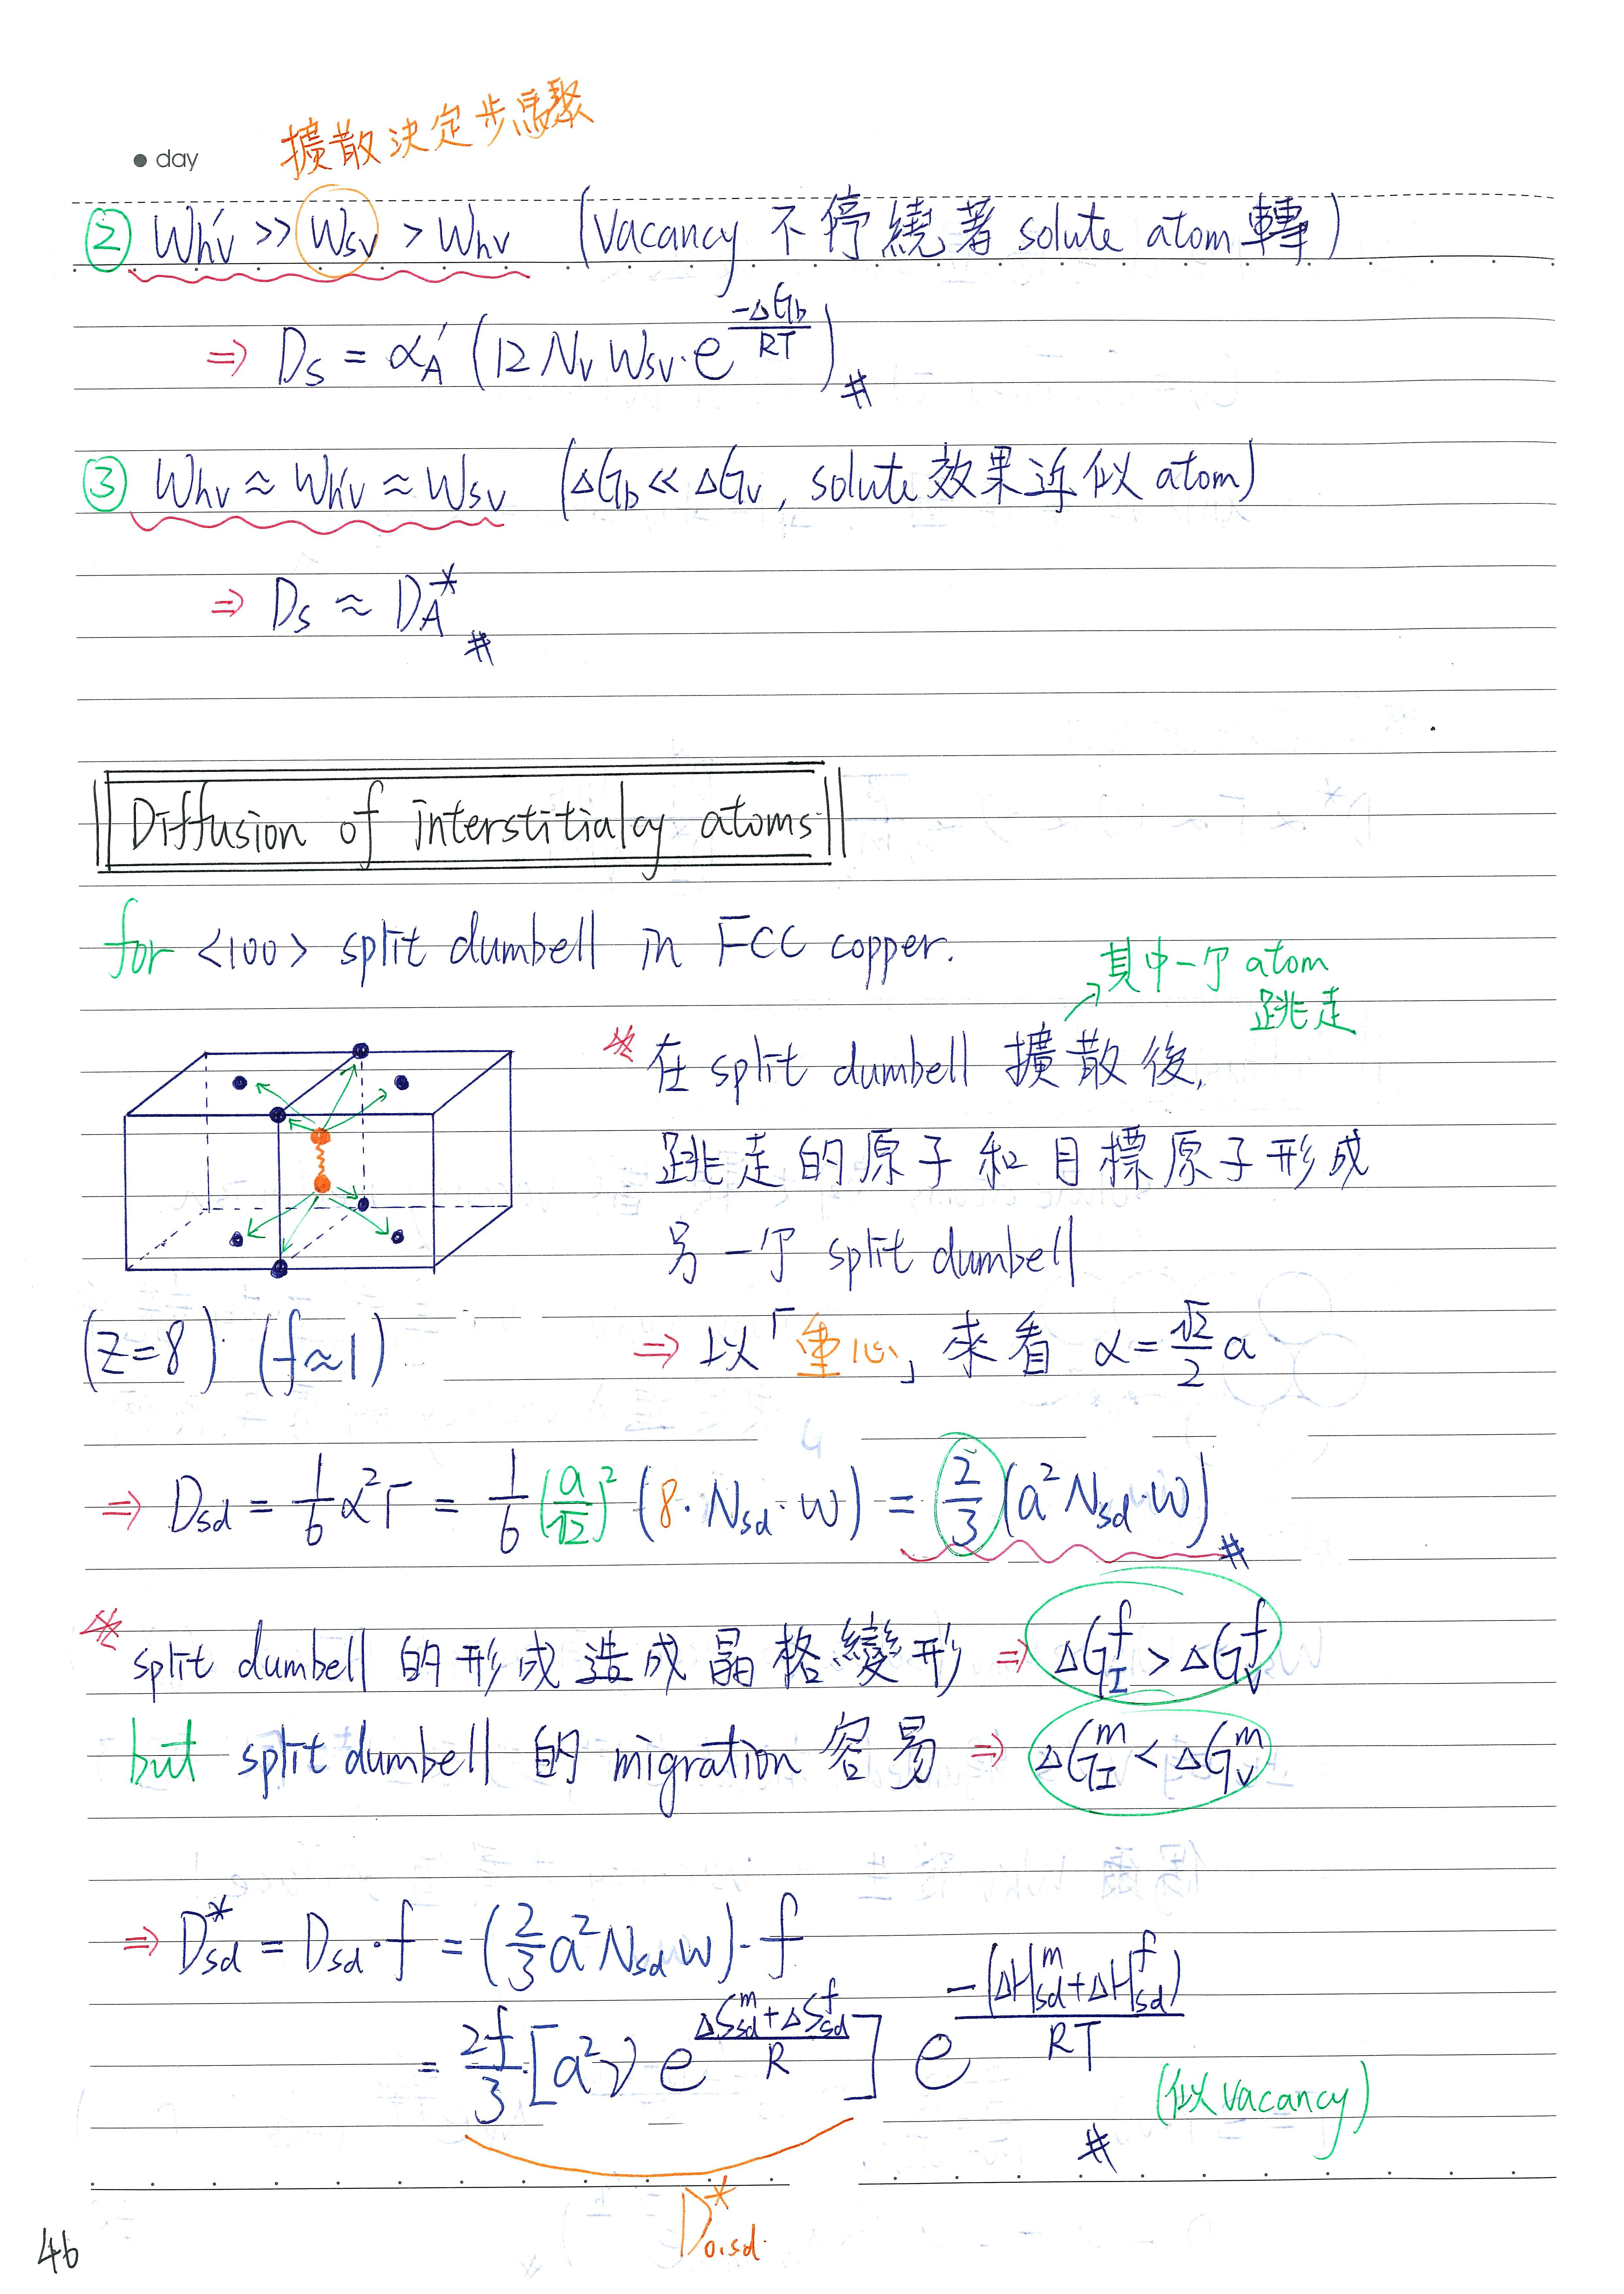 擴散決定步驟
day
② Wh'v >> Wsv > Whv (Vacancy 不停繞著 solute atom 轉)
⇒ Ds = αA' (12 Nv Wsv·e^(-ΔGb/RT)) #
③ Whv ≈ Wh'v ≈ Wsv (ΔGb << ΔGv, solute 效果近似 atom)
⇒ Ds ≈ DA* #
Diffusion of interstitialcy atoms
for <100> split dumbell in FCC copper.
其中一个 atom
跳走
※ 在 split dumbell 擴散後,
跳走的原子和目標原子形成
另一个 split dumbell
(Z=8) (f≈1) ⇒ 以「重心」來看 α = √2/2 a
⇒ Dsd = 1/6 α²Γ = 1/6 (a/√2)² (8·Nsd·w) = 2/3 (a² Nsd·w) #
※ split dumbell 的形成造成晶格變形 ⇒ ΔG_I^f > ΔG_V^f
but split dumbell 的 migration 容易 ⇒ ΔG_I^m < ΔG_V^m
⇒ Dsd* = Dsd·f = (2/3 a² Nsd w)·f
= 2f/3 [a²ν e^((ΔSsd^m+ΔSsd^f)/R)] e^(-(ΔHsd^m+ΔHsd^f)/RT)
(似 vacancy)
#
D*o,sd.
46